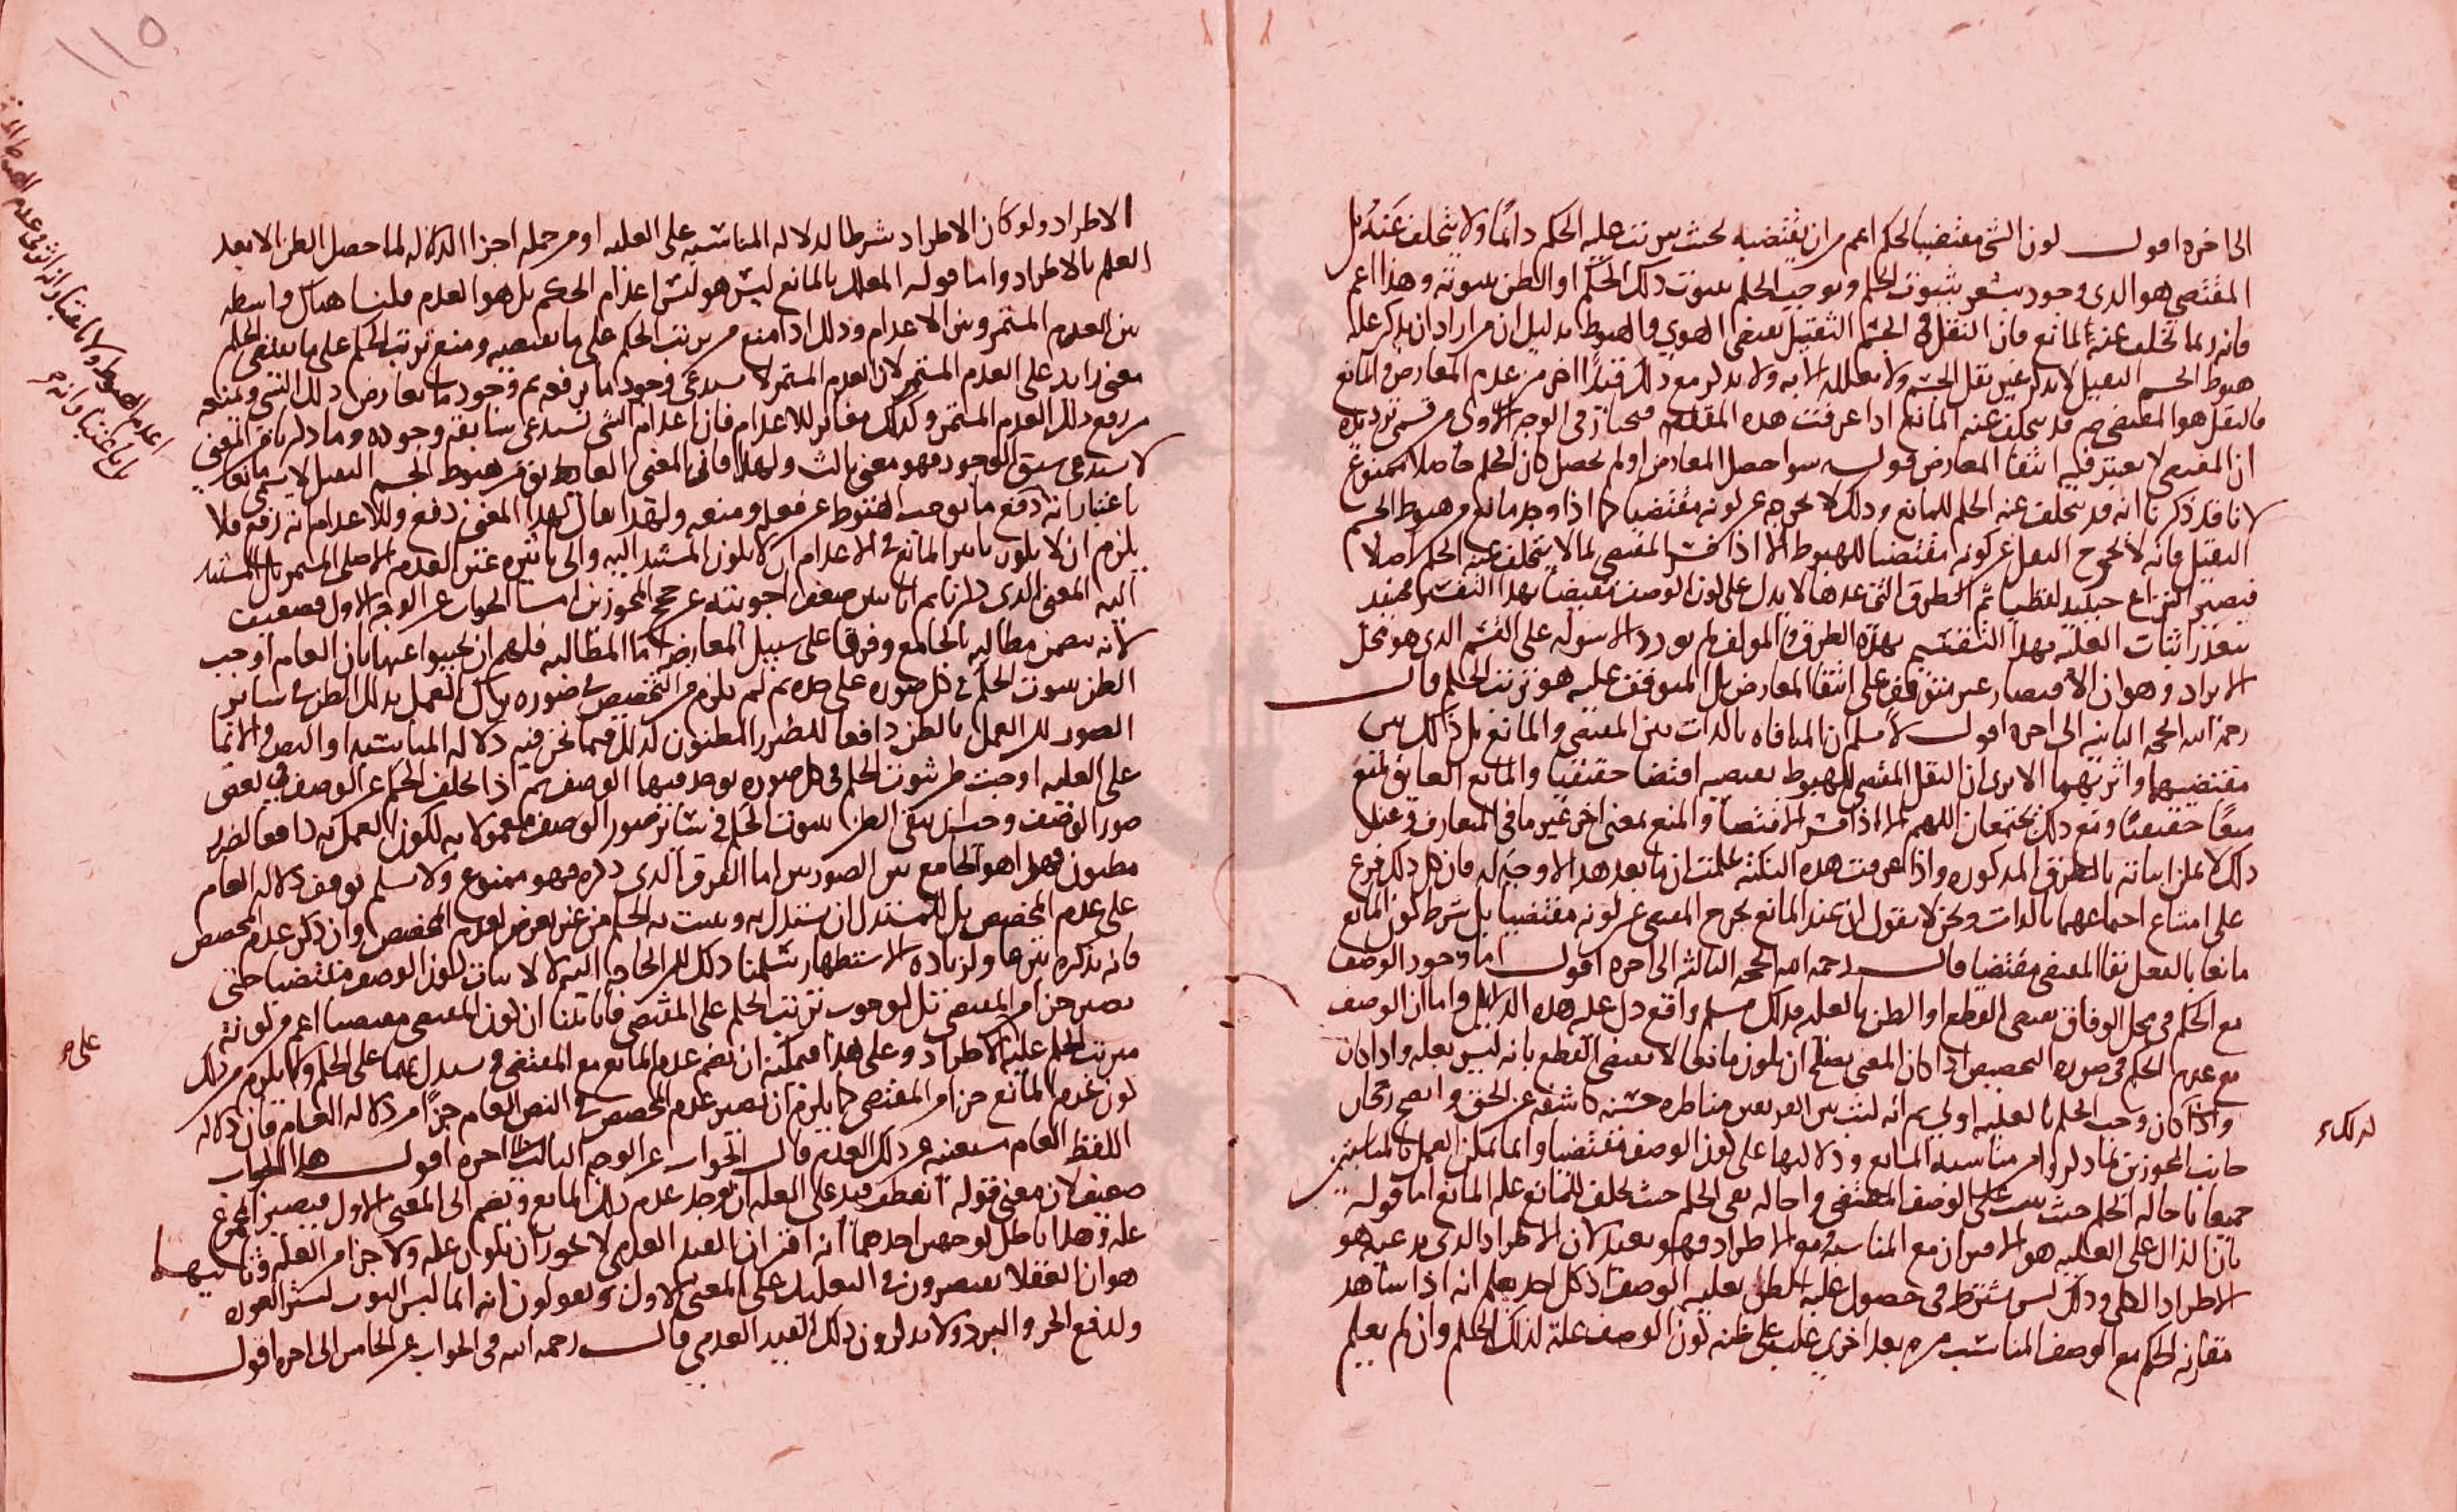 الى اخره اقول كون الشي مقتضيا لحكم اعم من ان يقتضيه بحيث يترتب عليه الحكم دائما ولا يتخلف عنه بل
المقتضي هو الذي وجوده يشعر بثبوت الحكم ويوجب الحكم بثبوت ذلك الحكم او الظن بثبوته وهذا اعم
فانه ربما تخلف عنه لمانع فان الثقل في الجسم الثقيل يقتضي الهوي والهبوط بدليل ان من اراد ان يذكر علة
هبوط الجسم الثقيل لا يذكر غير ثقل الجسم ولا يعلله الا به ولا يذكر مع ذلك قيدا اخر من عدم المعارض والمانع
فالثقل هو المقتضي ثم قد يتخلف عنه المانع اذا عرفت هذه المقدمة فنختار في الوجه الاول من قسمي ترديده
ان المقتضي لا يعتبر فيه انتفا المعارض قوله سوا حصل المعارض او لم يحصل كان الحكم حاصلا ممنوع
لانا قد ذكرنا انه قد يتخلف عنه الحكم للمانع وذلك لا يخرجه عن كونه مقتضيا كما اذا وجد مانع من هبوط الجسم
الثقيل فانه لا يخرج الثقل عن كونه مقتضيا للهبوط الا اذا فسر المقتضي بما لا يتخلف عنه الحكم اصلا
فيصير النزاع حينيذ لفظيا ثم الطرق التي عدها لا يدل على كون الوصف مقتضيا بهذا التفسير فيفيد
بتعذر اثبات العلية بهذا التفسير بهذه الطرق والمولف لم يورد الاسولة على القسم الذي هو محل
الايراد وهو ان الاقتضا غير متوقف على انتفا المعارض بل المتوقف عليه هو ترتب الحكم قال
رحمه الله الحجة الثانية الى اخره اقول لا نسلم ان المنافاة بالذات بين المقتضي والمانع بل ذلك بين
مقتضيهما واثريهما الا يرى ان الثقل المقتضي للهبوط يقتضيه اقتضا حقيقيا والمانع العايق يمنع
منعا حقيقيا ومع ذلك يجتمعان اللهم الا اذا فسر الاقتضا والمنع بمعنى اخر غير ما في المتعارف وعند
ذلك لا يمكن اثباته بالطرق المذكورة واذا عرفت هذه النكتة علمت ان ما بعد هذا لا وجه له فان كل ذلك فرع
على امتناع اجتماعهما بالذات ونحن لا نقول ان عند المانع يخرج المقتضي عن كونه مقتضيا بل شرط كون المانع
مانعا بالفعل بقا المقتضي مقتضيا قال رحمه الله الحجة الثالثة الى اخره اقول اما وجود الوصف
مع الحكم في محل الوفاق يقتضي القطع او الظن بالعلية فذلك مسلم واقع دل عليه هذه الدلايل واما ان الوصف
مع عدم الحكم في صورة التخصيص اذا كان المعنى يصلح ان يكون مانعا لا يقتضي القطع بانه ليس بعلة واذا كان
واذا كان وجب الحكم بالعلية اولى ثم انه ليث بين الفريقين مناظرة حسنة كاشفة عن الحق واتضح رجحان
جانب المجوزين بما ذكروا من مناسبة المانع ودلالتها على كون الوصف مقتضيا وانما يمكن العمل بالمناسبتين
جميعا باحالة الحكم حيث يثبت على الوصف المقتضي واحالة نفي الحكم حيث تخلف للمانع على المانع اما قوله
بان الدال على العلية هو الاقتران مع المناسبة ومع الاطراد فهو بعيد لان الاطراد الذي يدعيه هو
الاطراد الكلي وذلك ليس يشترط في حصول غلبة الظن بعلية الوصف اذ كل احد يعلم انه اذا شاهد
مقارنة الحكم مع الوصف المناسب مرة بعد اخرى غلب على ظنه كون الوصف علة لذلك الحكم وان لم يعلم
لذلك
١١٥
الاطراد ولو كان الاطراد شرطا لدلالة المناسبة على العلية او من جملة اجزا الدلالة لما حصل الظن الا بعد
العلم بالاطراد واما قوله المعلل بالمانع ليس هو ليس اعدام الحكم بل هو العدم قلنا هناك واسطة
بين العدم المستمر وبين الاعدام وذلك اذا منع من ترتب الحكم على ما يقتضيه ومنع ترتب الحكم على ما يقتضي الحكم
معنى زايد على العدم المستمر لان العدم المستمر لا يستدعي وجود ما يرفعه ثم وجود ما يعارض ذلك الشي ويمنعه
من رفع ذلك العدم المستمر وكذلك مغاير للاعدام فان اعدام الشي تستدعي سابقة وجوده وما ذكرنا من المعنى
لا يستدعي سبق الوجود فهو معنى ثالث ولهذا فان المعنى العايق من هبوط الجسم الثقيل لا يسمى مانعا
باعتبار انه دفع ما يوجب الهبوط عن فعله ومنعه ولهذا يقال لهذا المعنى دفع وللاعدام انه رفع فلا
يلزم ان لا يكون تاثير المانع في الاعدام ان لا يكون المستند اليه والى تاثيره عين العدم الاصلي المستمر بل المستند
اليه المعنى الذي ذكرناه ثم انا نبين ضعف اجوبته عن حجج المجوزين اما الجواب عن الوجه الاول فضعيف
لانه يتضمن مطالبة بالجامع وفرقا على سبيل المعارضة اما المطالبة فلهم ان يجيبوا عنها بان العام اوجب
الظن بثبوت الحكم في كل صورة على حدة ثم لم يلزم من التخصيص في صورة ترك العمل بذلك الظن في ساير
الصور لكن العمل بالظن دافعا للضرر المظنون كذلك فيما نحن فيه دلالة المناسبة او النص والايما
على العلية اوجبت ظن ثبوت الحكم في كل صورة يوجد فيها الوصف ثم اذا تخلف الحكم عن الوصف في بعض
صور الوصف وجب ان يبقى الظن بثبوت الحكم في ساير صور الوصف معمولا به لكون العمل به دافعا لضرر
مظنون فهذا هو الجامع بين الصورتين اما الفرق الذي ذكره فهو ممنوع ولا نسلم توقف دلالة العام
على عدم المخصص بل للمستدل ان يستدل به ويثبت به الحكم من غير تعرض لعدم المخصص وان ذكر عدم المخصص
فانه يذكره تبرعا ولزيادة الاستظهار سلمنا ذلك لكن الحاجة اليه لا لاثبات كون الوصف مقتضيا حتى
يصير جزا من المقتضي بل لوجوب ترتب الحكم على المقتضي فانا بينا ان كون المقتضي مقتضيا اعم من كونه
يترتب الحكم عليه بالاطراد وعلى هذا فيمكنه ان يضم عدم المانع مع المقتضي فيستدل بهما على الحكم ولا يلزم من ذلك
كون عدم المانع جزا من المقتضي كما يلزم ان يصير عدم المخصص في النص العام جزا من دلالة العام فان دلالة
اللفظ العام مستغنية عن ذلك العدم قال الجواب عن الوجه الثالث الى اخره اقول هذا الجواب
ضعيف لان معنى قوله انعطف قيد على العلة ان يوجد عدم ذلك المانع ويضم الى المعنى الاول فيصير المجموع
علة وهذا باطل لوجهين احدهما انه اقتران القيد العدمي لا يجوز ان يكون علة ولا جزا من العلة وثانيهما
هو ان العقلا يقتصرون في التعليل على المعنى الاول ويقولون انه انما لبس الثوب لستر العورة
ولدفع الحر والبرد ولا يذكرون ذلك القيد العدمي قال رحمه الله في الجواب عن الخامس الى اخره اقول
على